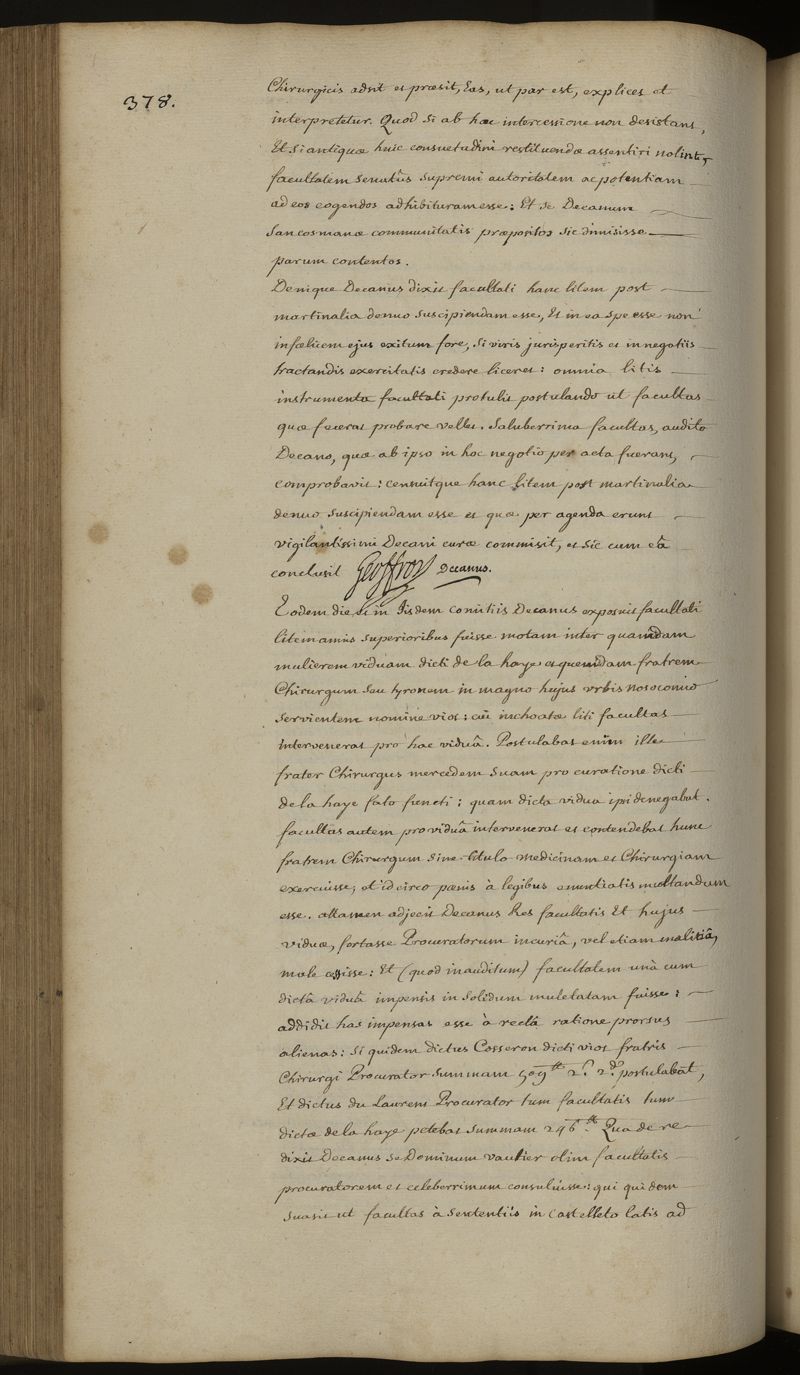 378.
Chirurgicis adsit et præsit, Eas, ut par est, explicet et
interpretetur. Quod si ab hac intercessione non desistant,
Et si antiquæ huic consuetudini restituendæ assentiri nolint,
facultatem Senatûs supremi autoritatem ac potentiam
ad eos cogendos adhibituram esse: Et se Decanum
San cosmanæ communitatis præpositos sic dimisisse
parum contentos.
Denique Decanus dixit facultati hanc litem post
martinalia denuo suscipiendam esse, Et in ea spe esse non
infœlicem ejus exitum fore, si viris jurisperitis et in negotiis
tractandis exercitatis credere liceret: omnia litis
instrumenta facultati protulit postulando ut facultas
quæ fecerat probare vellet. Saluberrima facultas, audito
Decano, quæ ab ipso in hoc negotio per acta fuerant,
comprobavit: censuitque hanc litem post martinalia
denuo suscipiendam esse et quæ per agenda erunt
vigilantissimi Decani curæ commisit, et sic cum eâ
conclusit Geoffroy Decanus.
Eodem die et in Iisdem comitiis Decanus exposuit facultati
litem annis superioribus fuisse motam inter quamdam
mulierem viduam dicti de la haye et quemdam fratrem
Chirurgum seu tyronem in magno hujus urbis nosocomio
servientem nomine viot: cui inchoatæ liti facultas
intervenerat pro hac viduâ. Postulabat enim ille
frater Chirurgus mercedem suam pro curatione dicti
de la haye fato functi; quam dicta vidua ipsi denegabat.
facultas autem pro viduâ intervenerat et contendebat hunc
fratrem Chirurgum sine titulo medicinam et Chirurgiam
exercuisse, et id circo pœnis à legibus enuntiatis multandum
esse. attamen adjecit Decanus Res facultatis Et hujus
viduæ, fortasse Procuratorum incuriâ, vel etiam malitiâ,
male cessisse: Et (quod inauditum) facultatem unà cum
dictâ viduâ impensis in solidum mulctatam fuisse:
addidit has impensas esse à rectâ ratione prorsus
alienas: si quidem dictus Cosseron dicti viot fratris
Chirurgi Procurator summam 509tt 2s. 2d. postulabat,
Et dictus du Laurens Procurator tum facultatis tum
dictæ de la haye petebat summam 246tt. Qua de re
dixit Decanus se Dominum vautier olim facultatis
procuratorem et celeberrimum consuluisse: qui quidem
suasit ut facultas à sententiis in castelleto latis ad